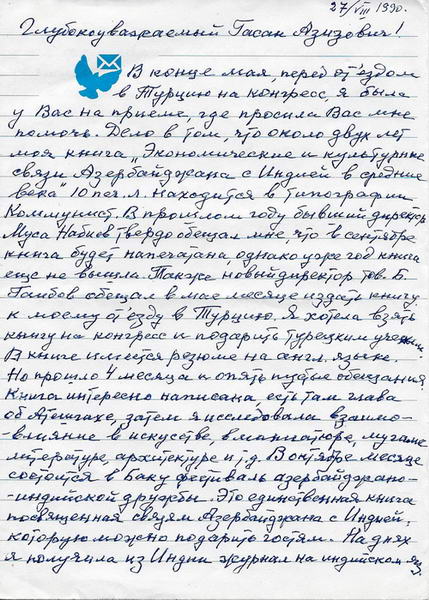 27/VIII 1990.
Глубокоуважаемый Гасан Азизович!
В конце мая, перед от'ездом
в Турцию на конгресс, я была
у Вас на приеме, где просила Вас мне
помочь. Дело в том, что около двух лет
моя книга „Экономические и культурные
связи Азербайджана с Индией в средние
века" 10 печ. л. находится в типографии
Коммунист. В прошлом году бывший директор
Муса Набиев твердо обещал мне, что в сентябре
книга будет напечатана, однако уже год книга
еще не вышла. Также новый директор тов. Б.
обещал в мае месяце издать книгу
к моему от'езду в Турцию. Я хотела взять
книгу на конгресс и подарить турецким ученым.
В книге имеется резюме на англ. языке.
Но прошло 4 месяца и опять пустые обещания.
Книга интересно написана, есть там глава
об Атешгахе, затем я исследовала взаимо-
-влияние в искустве, в миниатюре, мугаме
литературе, архитектуре и т.д. В октябре месяце
состоится в Баку фестиваль азербайджано-
-индийской дружбы. Это единственная книга
посвященная связям Азербайджана с Индией,
которую можно подарить гостям. На днях
я получила из Индии журнал на индийском яз.